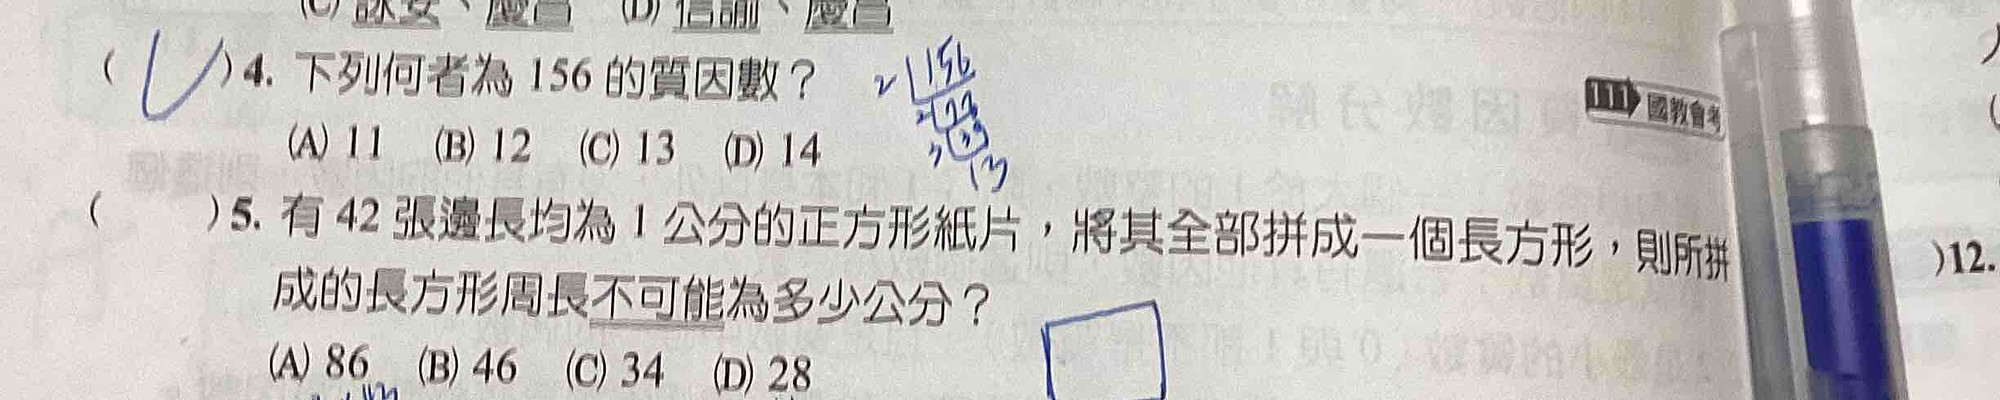 (C) 詠安、慶昌 (D) 信諭、慶昌
( )4. 下列何者為 156 的質因數？
2 156
111 國教會考
(A) 11 (B) 12 (C) 13 (D) 14
13
( )5. 有 42 張邊長均為 1 公分的正方形紙片，將其全部拼成一個長方形，則所拼
)12.
成的長方形周長不可能為多少公分？
(A) 86 (B) 46 (C) 34 (D) 28